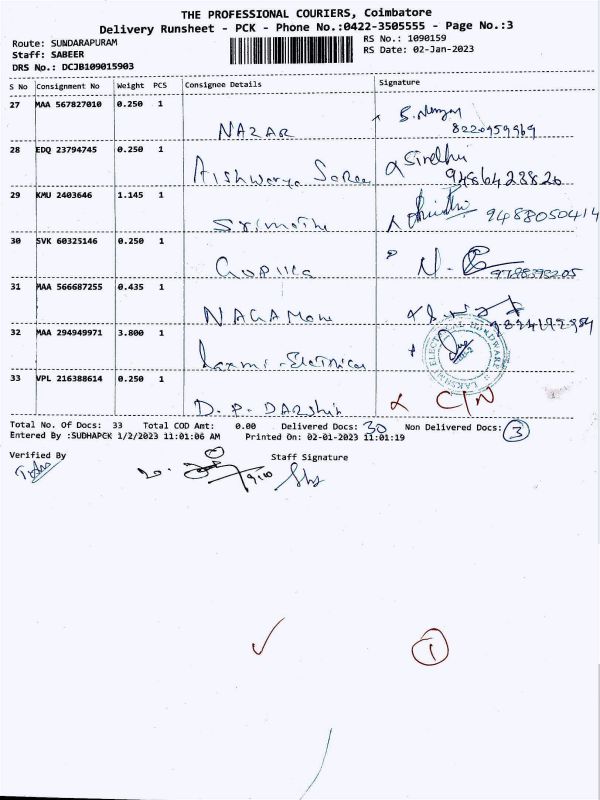 THE PROFESSIONAL COURIERS, Coimbatore
Delivery Runsheet - PCK - Phone No.:0422-3505555 - Page No.:3
Route: SUNDARAPURAM
RS No.: 1090159
Staff: SABEER
RS Date: 02-Jan-2023
DRS No.: DCJB109015903
S No Consignment No Weight PCS Consignee Details Signature
27 MAA 567827010 0.250 1
NAZAR 8220959969
28 EDQ 23794745 0.250 1
Aishwarya Sindhu
9486428826
29 KMU 2403646 1.145 1
Srimathi 9488050414
30 SVK 60325146 0.250 1
31 MAA 566687255 0.435 1
NAGAMONI
32 MAA 294949971 3.800 1
Laxmi
33 VPL 216388614 0.250 1
D. P. DARshin C/N
Total No. Of Docs: 33 Total COD Amt: 0.00 Delivered Docs: 30 Non Delivered Docs: 3
Entered By :SUDHAPCK 1/2/2023 11:01:06 AM Printed On: 02-01-2023 11:01:19
Verified By Staff Signature
1